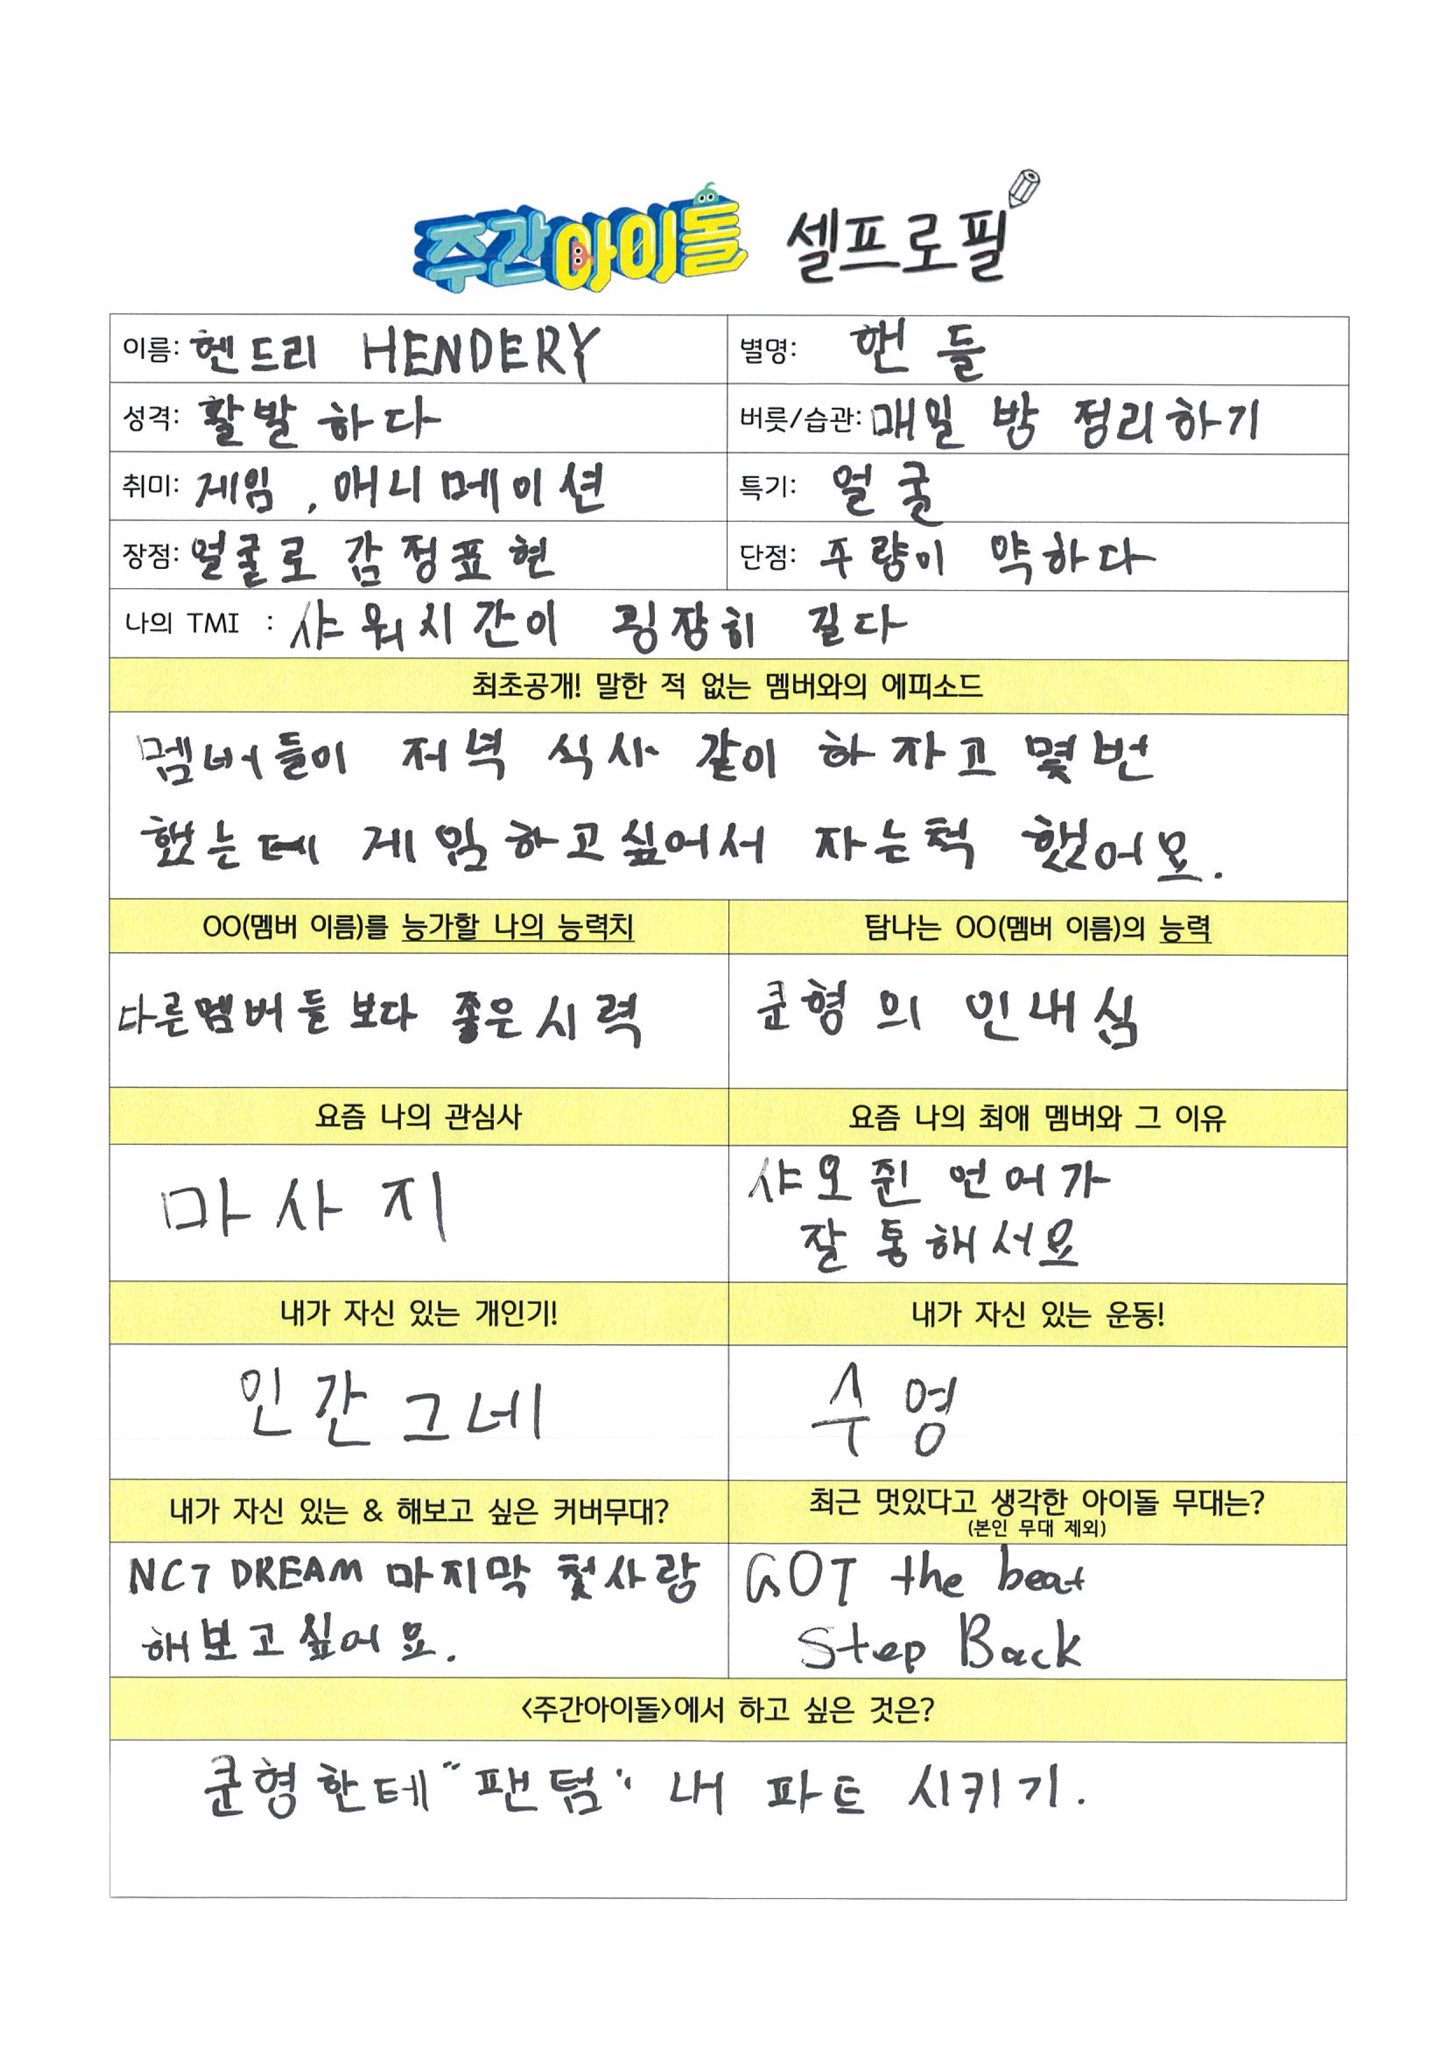 주간아이돌 셀프로필
이름: 헨드리 HENDERY
별명: 핸들
성격: 활발하다
버릇/습관: 매일 방 정리하기
취미: 게임, 애니메이션
특기: 얼굴
장점: 얼굴로 감정표현
단점: 주량이 약하다
나의 TMI : 샤워시간이 굉장히 길다
최초공개! 말한 적 없는 멤버와의 에피소드
멤버들이 저녁 식사 같이 하자고 몇번
했는데 게임하고싶어서 자는척 했어요.
OO(멤버 이름)를 능가할 나의 능력치
다른멤버들보다 좋은시력
탐나는 OO(멤버 이름)의 능력
쿤형의 인내심
요즘 나의 관심사
마사지
요즘 나의 최애 멤버와 그 이유
샤오쥔 언어가
잘 통해서요
내가 자신 있는 개인기!
인간그네
내가 자신 있는 운동!
수영
내가 자신 있는 & 해보고 싶은 커버무대?
NCT DREAM 마지막 첫사랑
해보고싶어요.
최근 멋있다고 생각한 아이돌 무대는?
(본인 무대 제외)
GOT the beat
Step Back
<주간아이돌>에서 하고 싶은 것은?
쿤형한테 "팬텀" 내 파트 시키기.